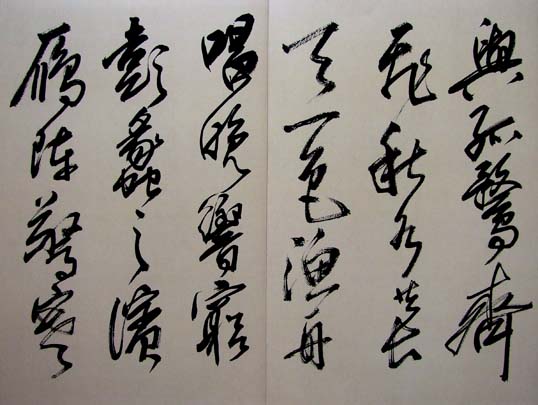 與孤鶩齊
飛秋水共長
天一色漁舟
唱晚響窮
彭蠡之濱
鴈陣驚寒